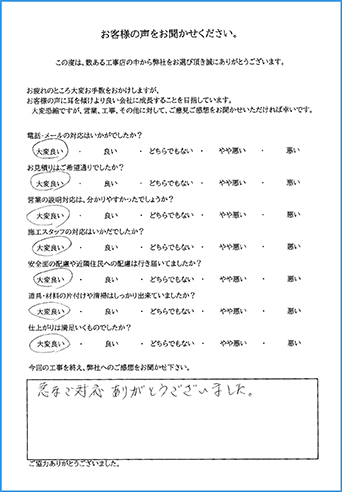 お客様の声をお聞かせください。
この度は、数ある工事店の中から弊社をお選び頂き誠にありがとうございます。
お疲れのところ大変お手数をおかけしますが、
お客様の声に耳を傾けより良い会社に成長することを目指しています。
大変恐縮ですが、営業、工事、その他に対して、ご意見ご感想をお聞かせいただければ幸いです。
電話・メールの対応はいかがでしたか？
大変良い ・ 良い ・ どちらでもない ・ やや悪い ・ 悪い
お見積りはご希望通りでしたか？
大変良い ・ 良い ・ どちらでもない ・ やや悪い ・ 悪い
営業の説明対応は、分かりやすかったでしょうか？
大変良い ・ 良い ・ どちらでもない ・ やや悪い ・ 悪い
施工スタッフの対応はいかだでしたか？
大変良い ・ 良い ・ どちらでもない ・ やや悪い ・ 悪い
安全面の配慮や近隣住民への配慮は行き届いてましたか？
大変良い ・ 良い ・ どちらでもない ・ やや悪い ・ 悪い
道具・材料の片付けや清掃はしっかり出来ていましたか？
大変良い ・ 良い ・ どちらでもない ・ やや悪い ・ 悪い
仕上がりは満足いくものでしたか？
大変良い ・ 良い ・ どちらでもない ・ やや悪い ・ 悪い
今回の工事を終え、弊社へのご感想をお聞かせ下さい。
急なご対応 ありがとうございました。
ご協力ありがとうございました。